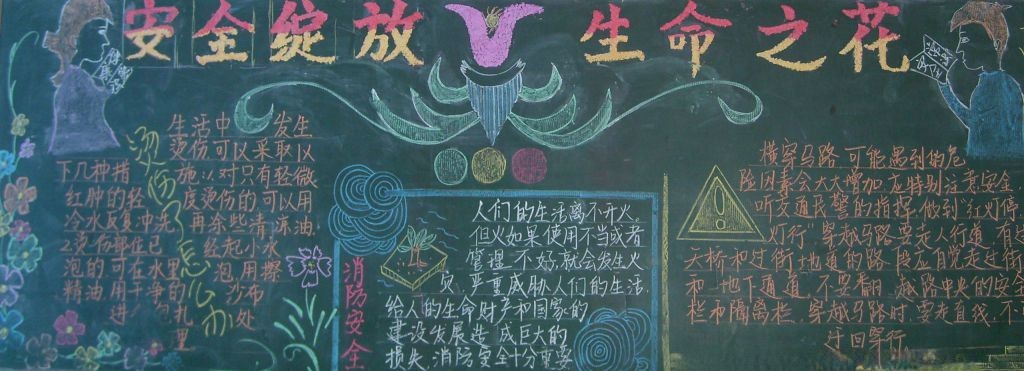 安全绽放 生命之花
烫伤了怎么办
生活中 发生
烫伤可以采取以
下几种措 施1对只有轻微
红肿的轻 度烫伤的可以用
冷水反复冲洗 再余些清凉油
2烫伤部位已 经起小水
泡的可在水里 泡用擦
精油用干净的 沙布
进行包扎 处
里
消防安全
人们的生活离不开火
但火如果使用不当或者
管理不好就会发生火
灾严重威胁人们的生活
给人的生命财产和国家的
建设发展造成巨大的
损失消防安全十分重要
横穿马路可能遇到的危
险因素会大大增加应特别注意安全
听交通民警的指挥做到"红灯停
灯行"穿越马路要走人行道有过
天桥和过街地道的路段应自觉走过街
和地下通道不要翻越路中央的安全
栏和隔离栏穿越马路时要走直线不
迂回穿行